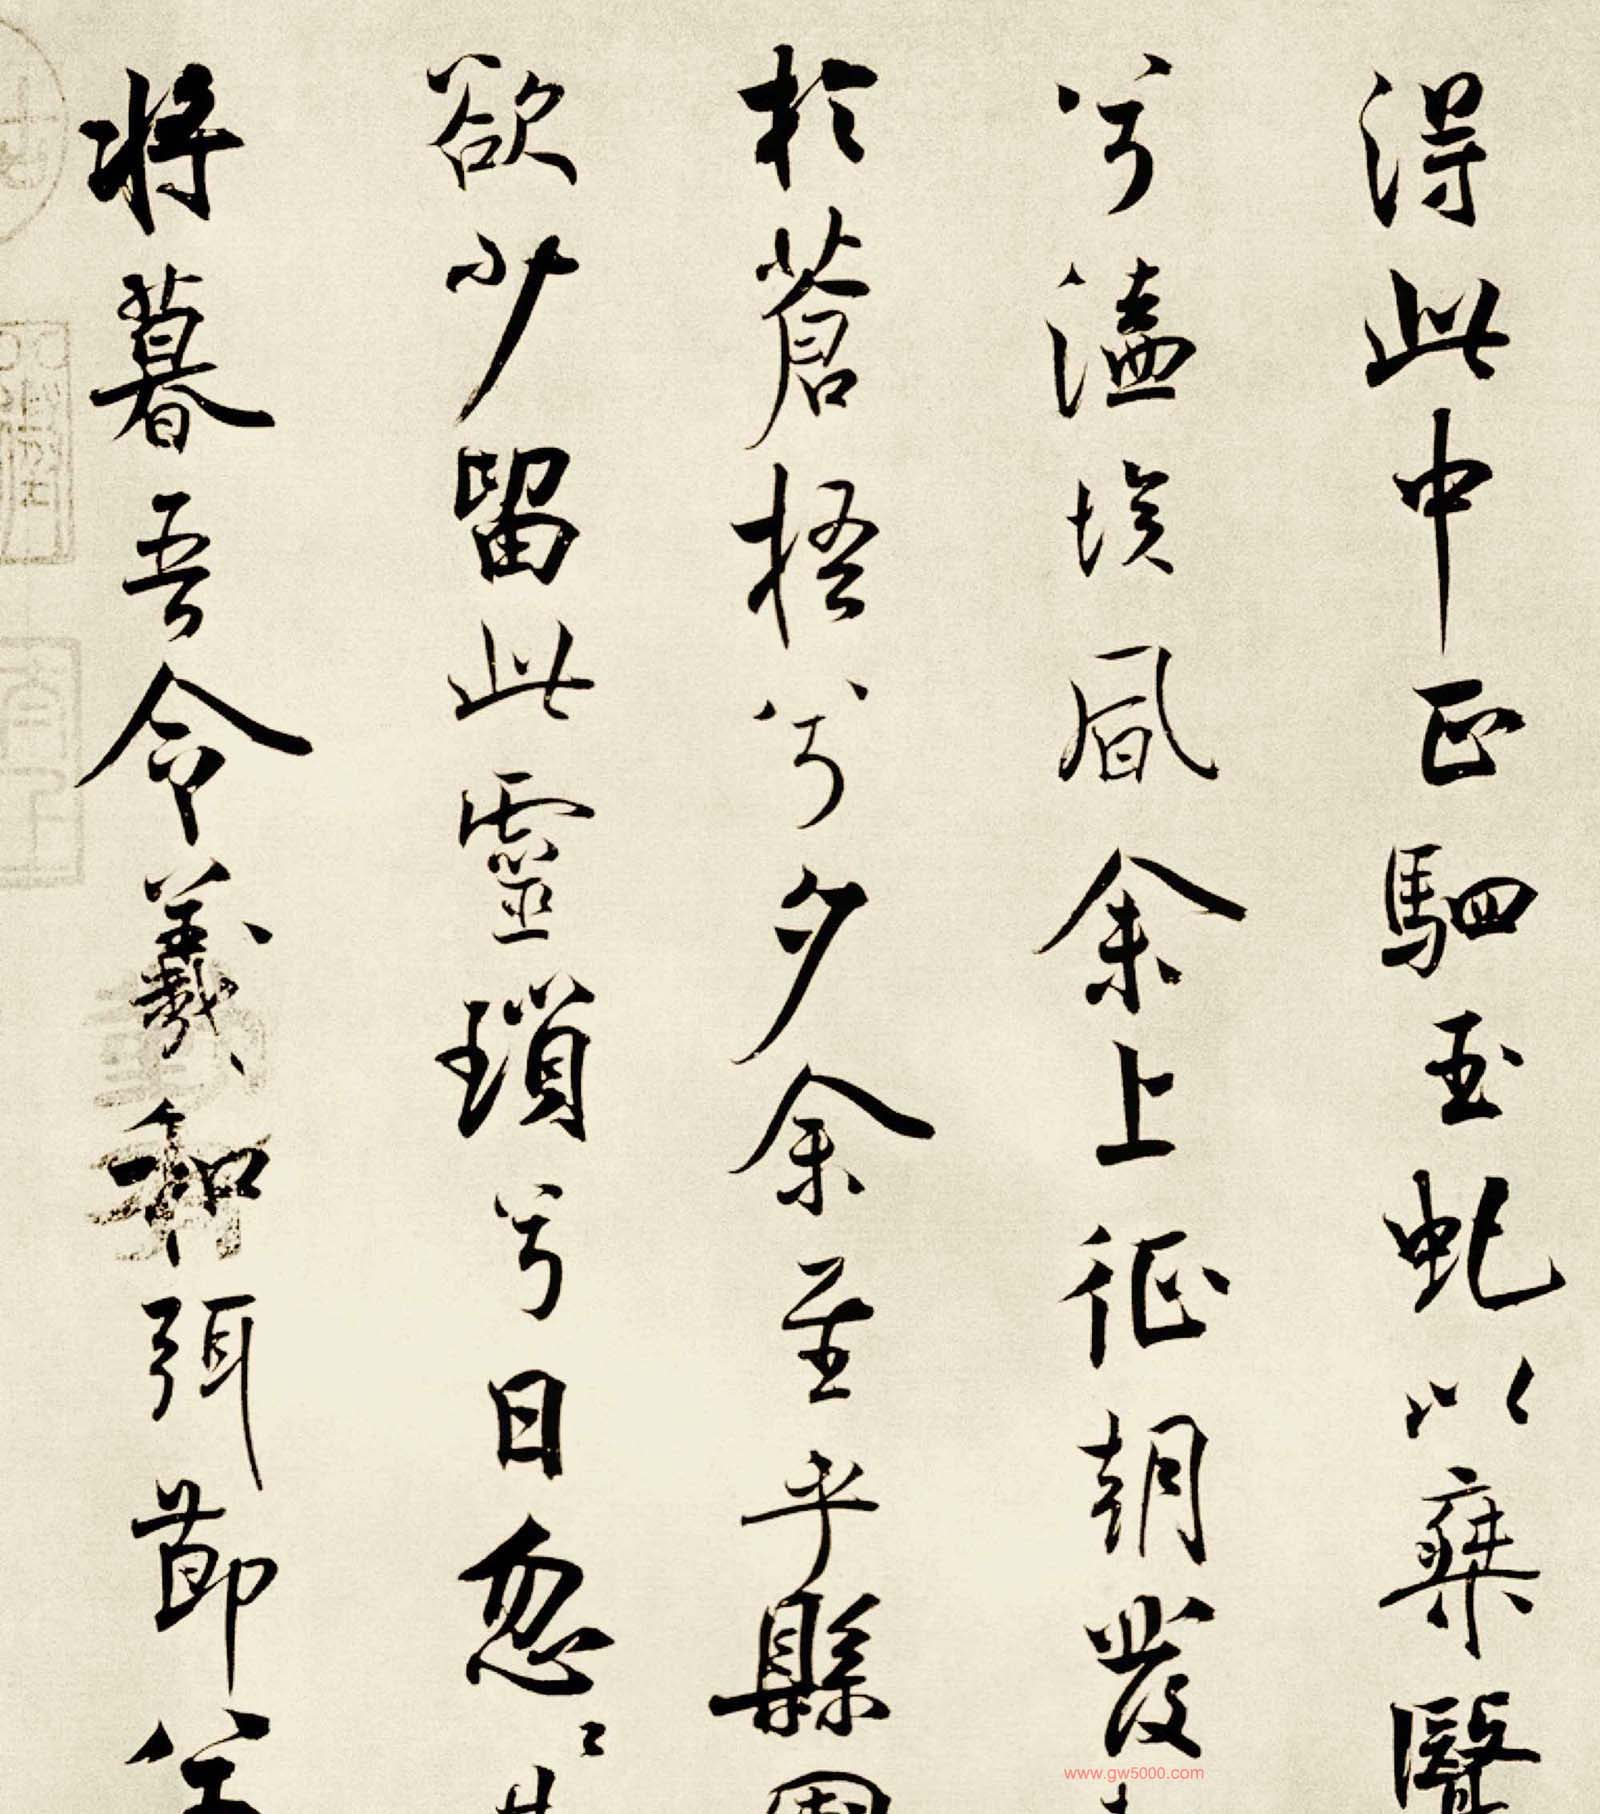 得此中正駟玉虬以椉鷖
兮溘埃風余上征朝發
於蒼梧兮夕余至乎縣圃
欲少留此靈瑣兮日忽〻其
將暮吾令羲和弭節兮
www.gw5000.com